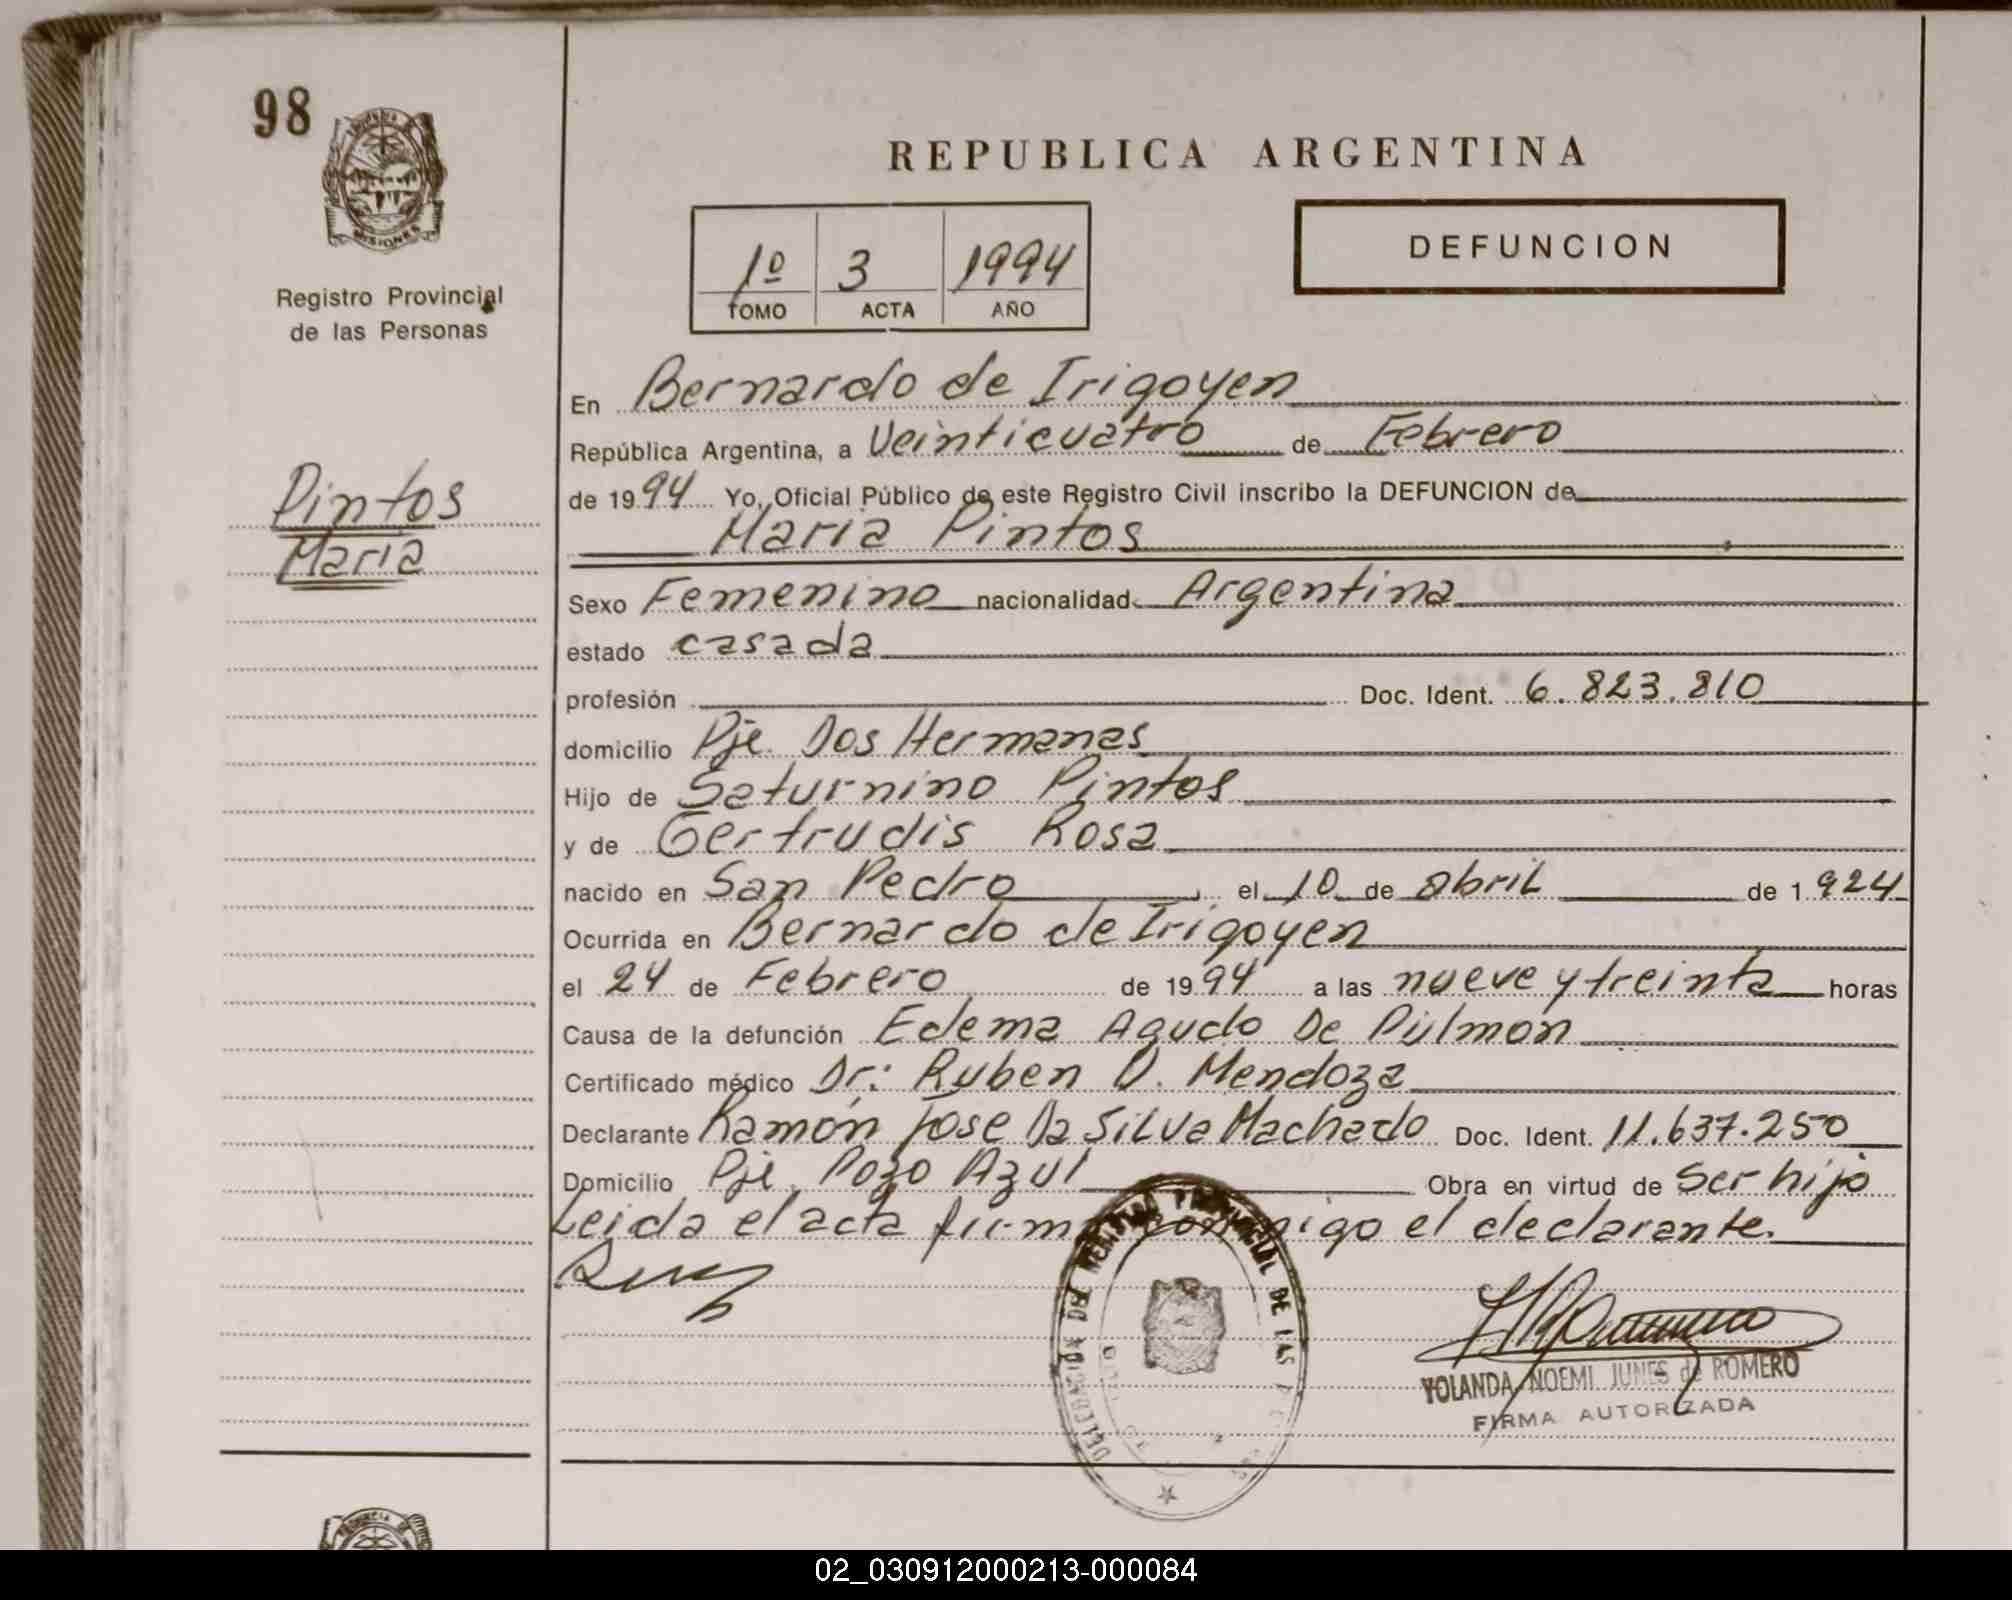 98
MISIONES
Registro Provincial
de las Personas
REPUBLICA ARGENTINA
1º 3 1994
TOMO ACTA AÑO
DEFUNCION
Pintos
Maria
En Bernardo de Irigoyen
República Argentina, a Veinticuatro de Febrero
de 1994 Yo, Oficial Público de este Registro Civil inscribo la DEFUNCION de
Maria Pintos
Sexo Femenino nacionalidad Argentina
estado casada
profesión Doc. Ident. 6.823.810
domicilio Pje. Dos Hermanas
Hijo de Saturnino Pintos
y de Gertrudis Rosa
nacido en San Pedro el 10 de abril de 1924
Ocurrida en Bernardo de Irigoyen
el 24 de Febrero de 1994 a las nueve y treinta horas
Causa de la defunción Edema Agudo De Pulmon
Certificado médico Dr: Ruben D. Mendoza
Declarante Ramón Jose Da Silva Machado Doc. Ident. 11.637.250
Domicilio Pje. Pozo Azul Obra en virtud de Ser hijo
Leida el acta firma conmigo el declarante.
DELEGACION DEL REGISTRO PROVINCIAL DE LAS
YOLANDA NOEMI JUNES de ROMERO
FIRMA AUTORIZADA
PROVINCIA DE
02_030912000213-000084